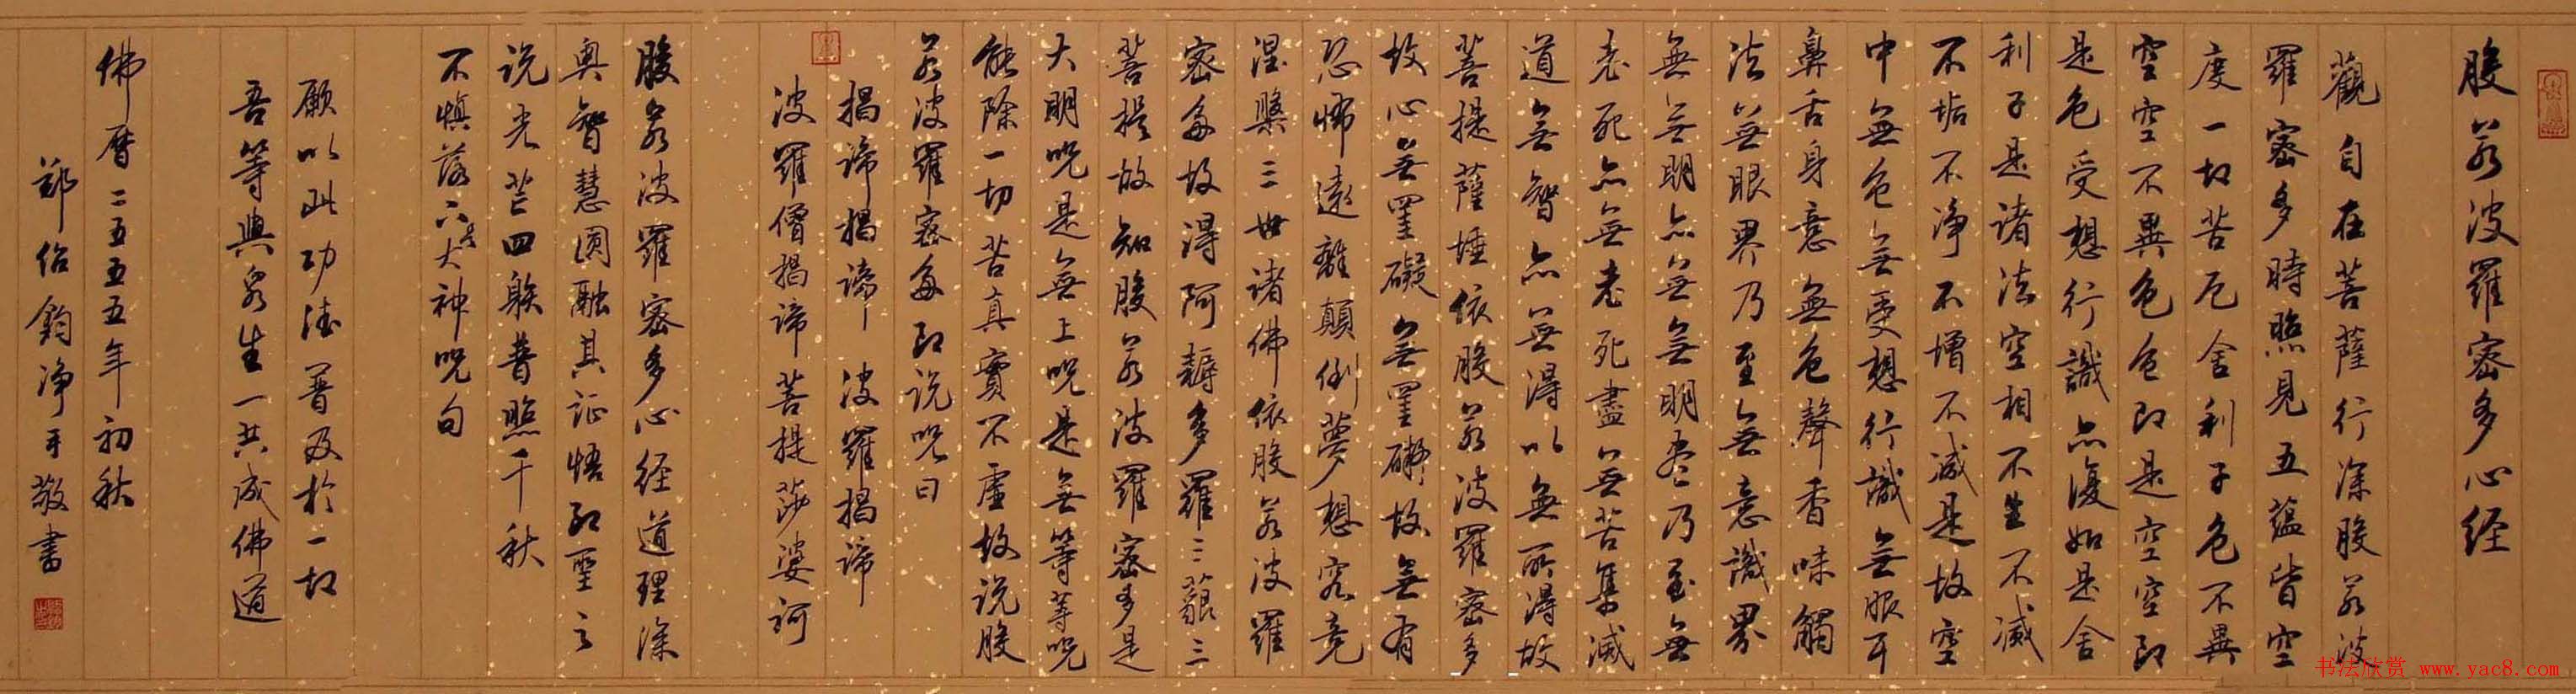 般若波羅密多心经
觀自在菩薩行深般若波
羅密多時照見五蕴皆空
度一切苦厄舍利子色不異
空空不異色色即是空空即
是色受想行識亦復如是舍
利子是诸法空相不生不滅
不垢不净不增不减是故空
中無色無受想行識無眼耳
鼻舌身意無色聲香味觸
法無眼界乃至無意識界
無無明亦無無明盡乃至無
老死亦無老死盡無苦集滅
道無智亦無得以無所得故
菩提薩埵依般若波羅密多
故心無罣礙無罣礙故無有
恐怖遠離顛倒夢想究竟
涅槃三世诸佛依般若波羅
密多故得阿耨多羅三藐三
菩提故知般若波羅密多是
大明咒是無上咒是無等等咒
能除一切苦真實不虚故说般
若波羅密多即说咒曰
揭谛揭谛 波羅揭谛
波羅僧揭谛菩提莎婆訶
般若波羅密多心经道理深
奥智慧圆融其证悟即聖之
说光芒四躲普照千秋
不慎落六是大神咒句
願以此功德普及於一切
吾等與眾生一共成佛道
佛曆二五五五年初秋
鄭伯鈞净手敬書
书法欣赏 www.yac8.com